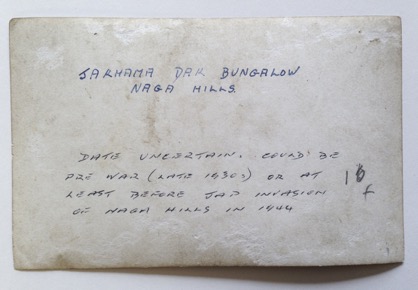 JAKHAMA DAK BUNGALOW
NAGA HILLS.
DATE UNCERTAIN. COULD BE
PRE WAR (LATE 1930s) OR AT
LEAST BEFORE JAP INVASION
OF NAGA HILLS IN 1944